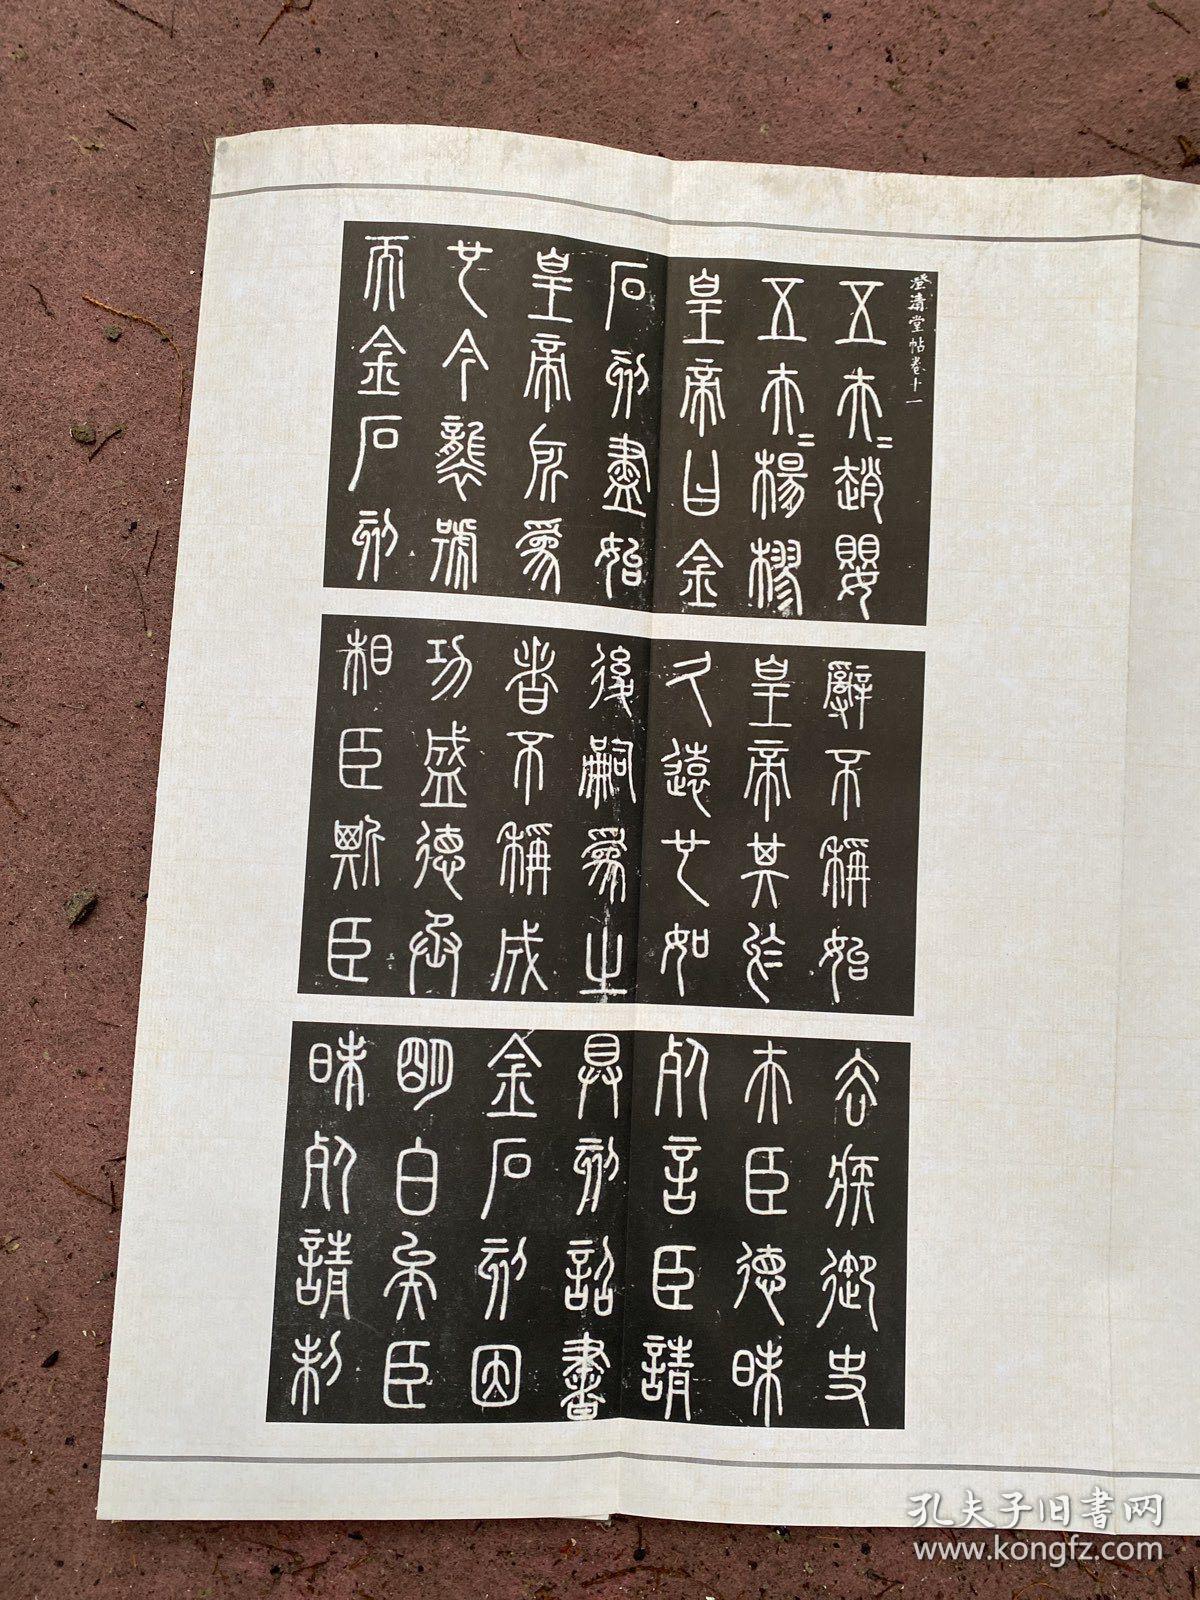 澄清堂帖卷十一
五夫=趙嬰
五夫=楊樛
皇帝曰金
石刻盡始
皇帝所爲
也今襲號
而金石刻
辭不稱始
皇帝其於
久遠也如
後嗣爲之
者不稱成
功盛德丞
相臣斯臣
去疾御史
夫臣德昧
死言臣請
具刻詔書
金石刻因
明白矣臣
昧死請制
孔夫子旧書网
www.kongfz.com